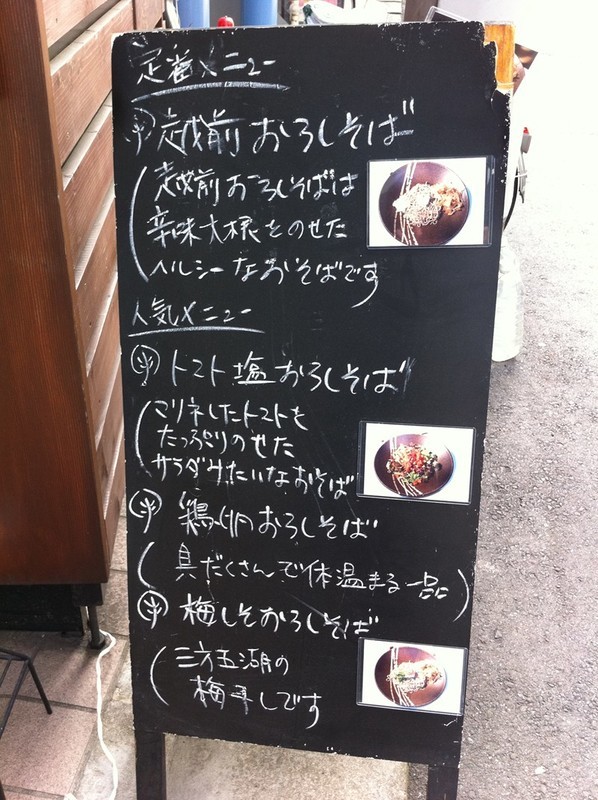 定番メニュー
越前おろしそば
(越前おろしそばは
辛味大根をのせた
ヘルシーなおそばです
人気メニュー
トマト塩おろしそば
(マリネしたトマトを
たっぷりのせた
サラダみたいなおそば
鶏つくねおろしそば
(具だくさんで体温まる一品)
梅しそおろしそば
(三方五湖の
梅干しです